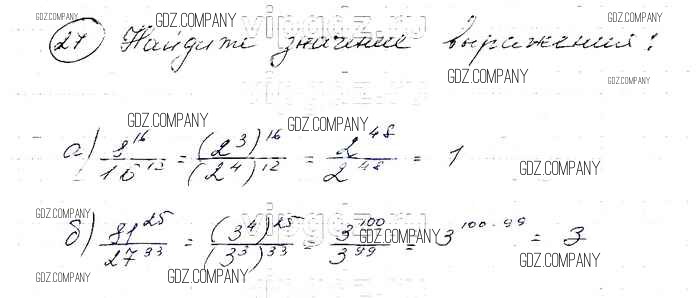 GDZ.COMPANY GDZ.COMPANY
vipgdz.ru
GDZ.COMPANY
27 Найдите значение выражения:
GDZ.COMPANY
GDZ.COMPANY
GDZ.COMPANY GDZ.COMPANY
а) 8^16/16^13 = (2^3)^16/(2^4)^12 = 2^48/2^48 = 1
GDZ.COMPANY
GDZ.COMPANY
vipgdz.ru
GDZ.COMPANY
б) 81^25/27^33 = (3^4)^25/(3^3)^33 = 3^100/3^99 = 3^100-99 = 3
GDZ.COMPANY
GDZ.COMPANY
GDZ.COMPANY
GDZ.COMPANY